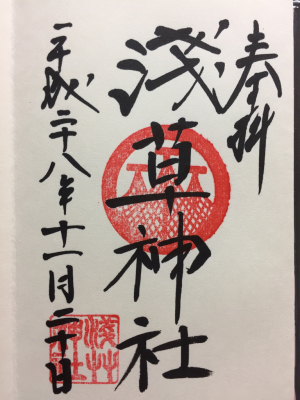 奉拝
淺草神社
平成二十八年十一月二十日
淺艸神社